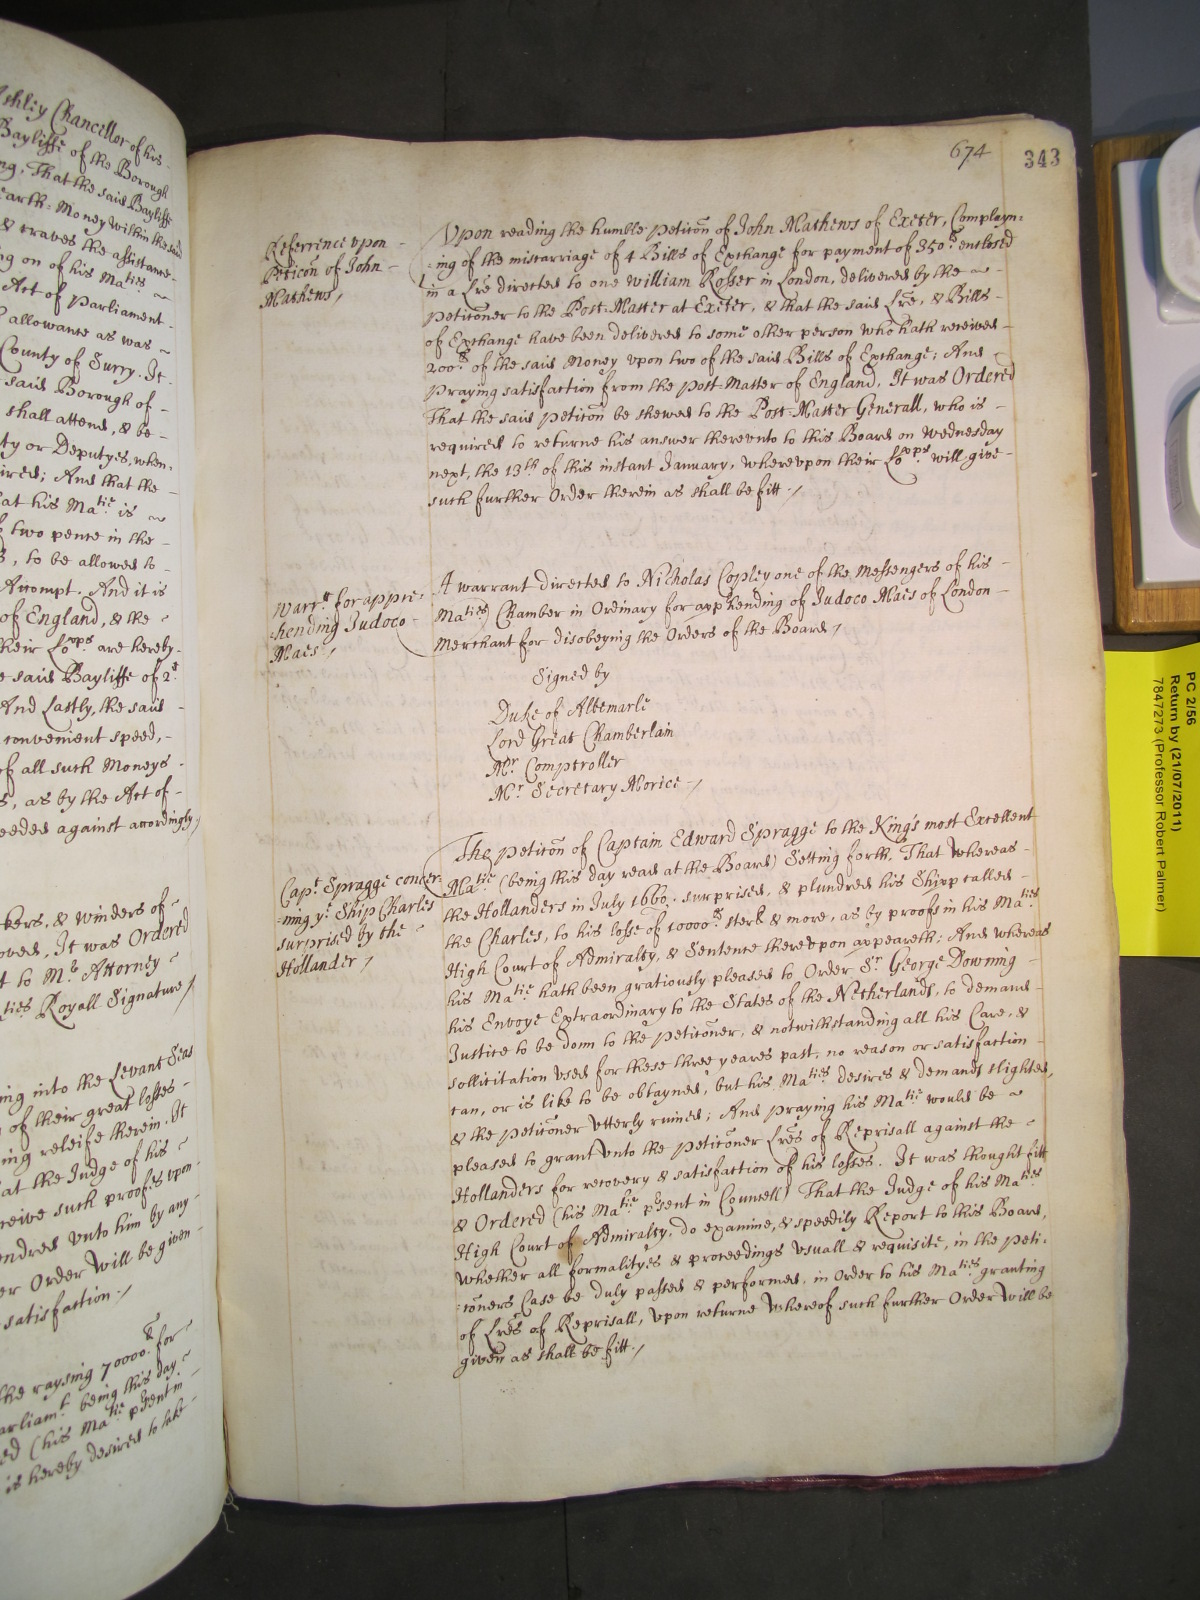 ishley Chancellor of his
Bayliffe of the Borough
ng, That the said Bayliffe
earth-Money within the said
& craves the assistance
ng on of his Ma:ties
Act of Parliament
allowance as was
County of Surry. It
said Borough of
shall attend, & be
ty or Deputyes, when-
ired; And that the
at his Ma:tie is
two pence in the
s, to be allowed to
Attempt. And it is
of England, & the
their Lo:pps are hereby
e said Bayliffe of 2:s
And Lastly, the said
convenient speed,
of all such Moneys
s, as by the Act of
eeded against accordingly/
kers, & Winders of
oved, It was Ordered
t to M:r Attorney
ties Royall Signature/
ing into the Levant Seas
of their great losses
ing releife therein. It
at the Judge of his
receive such proofes upon
endred unto him by any
er Order will be given
satisfaction./
the raysing 70000:£ for
arliam:t being this day
ed (his Ma:tie p'sent in
is hereby desired to take
674
343
Referrence upon
Peticõn of John
Mathews/
Upon reading the humble peticõn of John Mathews of Exeter, Complayn-
-ing of the miscarriage of 4 Bills of Exchange for payment of 350:£ enclosed
in a Lr̃e directed to one William Rosser in London, delivered by the
peticõner to the Post-Master at Exeter, & that the said Lr̃e, & Bills
of Exchange have been delivered to some other person who hath received
200:£ of the said Money upon two of the said Bills of Exchange; And
praying satisfaction from the post-Master of England. It was Ordered
That the said peticõn be shewed to the Post-Master Generall, who is
required to returne his answer thereunto to this Board on Wednesday
next, the 13th of this instant January, whereupon their Lo:pps will give
such further Order therein as shall be fitt./
Warr:t for appre-
-hending Judoco
Maes/
A warrant directed to Nicholas Copley one of the Messengers of his
Ma:ties Chamber in Ordinary for app'hending of Judoco Maes of London
Merchant for disobeying the Orders of the Board/
Signed by
Duke of Albemarle
Lord Great Chamberlain
M:r Comptroller
M:r Secretary Morice/
Cap:t Spragge concer-
-ning y:e Ship Charles
surprised by the
Hollander/
The peticõn of Captain Edward Spragge to the King's most Excellent
Ma:tie (being this day read at the Board) Setting forth, That whereas
the Hollanders in July 1660. surprised, & plundred his Shipp called
the Charles, to his losse of 10000:£ sterl & more, as by proofs in his Ma:ties
High Court of Admiralty, & Sentence thereupon appeareth; And whereas
his Ma:tie hath been gratiously pleased to Order S:r George Downing
his Envoye Extraordinary to the States of the Netherlands, to demand
Justice to be donn to the peticõner, & notwithstanding all his Care, &
sollicitation used for these three yeares past, no reason or satisfaction
can, or is like to be obtayned, but his Ma:ties desires & demands slighted,
& the peticõner utterly ruined; And praying his Ma:tie would be
pleased to grant unto the peticõner Lr̃es of Reprisall against the
Hollanders for recovery & satisfaction of his losses. It was thought fitt
& Ordered (his Ma:tie p'sent in Councell) That the Judge of his Ma:ties
High Court of Admiralty, do examine, & speedily Report to this Board,
whether all formalityes & proceedings usuall & requisite, in the peti-
-cõners Case be duly passed & performed, in Order to his Ma:ties granting
of Lr̃es of Reprisall, upon returne whereof such further Order will be
given as shall be fitt./
PC 2/56
Return by (21/07/2011)
7847273 (Professor Robert Palmer)